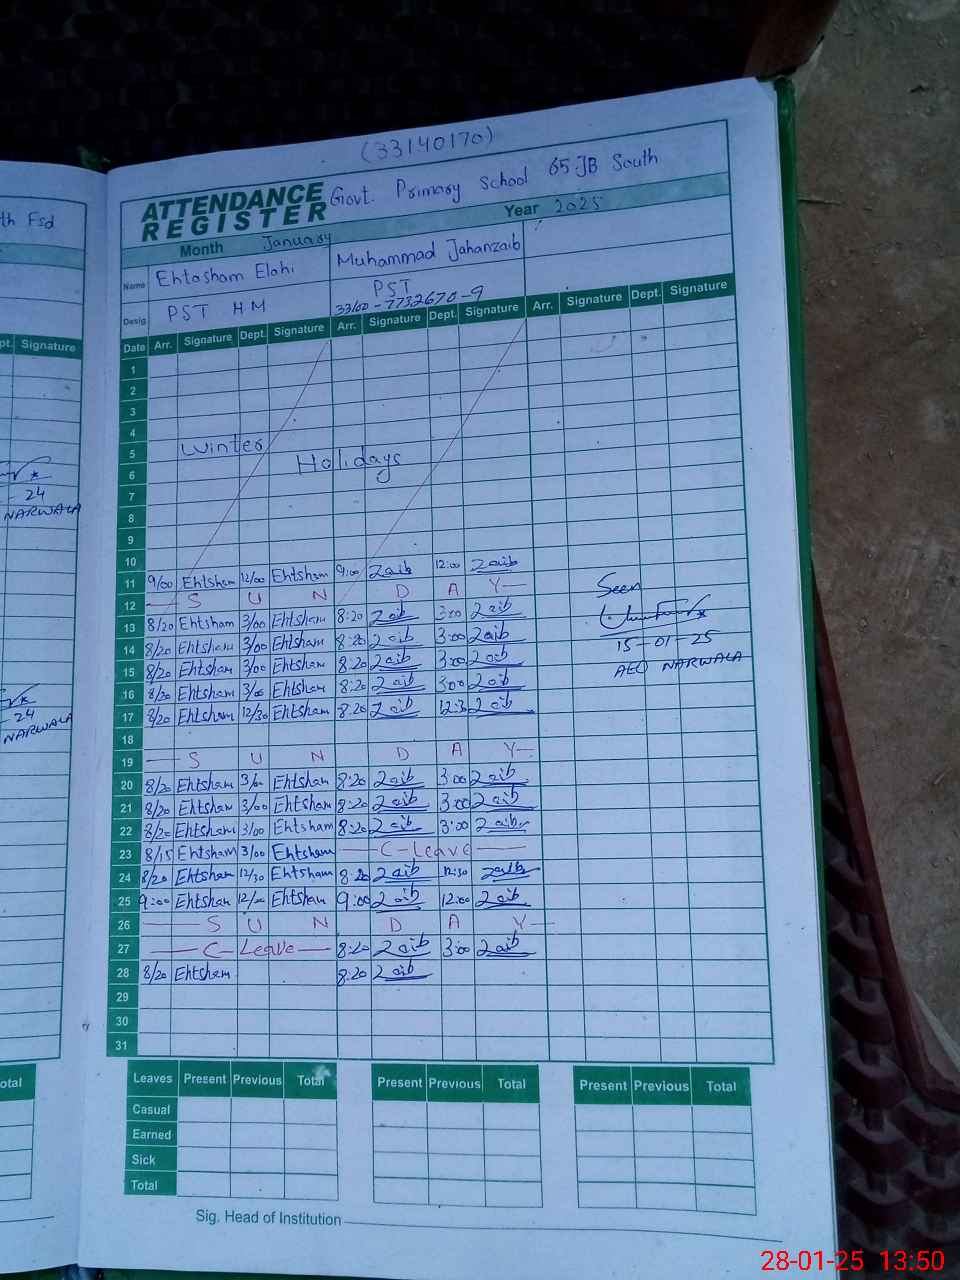 th Fsd
pt. Signature
24
NARWALA
24
NARWALA
otal
(33140170)
ATTENDANCE REGISTER Govt. Primary School 65 JB South
Month January Year 2025
Name Ehtasham Elahi Muhammad Jahanzaib
Desig. PST HM PST
33100-7732670-9
Date Arr. Signature Dept. Signature Arr. Signature Dept. Signature Arr. Signature Dept. Signature
1
2
3
4
5 Winter
6 Holidays
7
8
9
10
11 9/00 Ehtsham 12/00 Ehtsham 9:00 Zaib 12:00 Zaib
12 S U N D A Y
13 8/20 Ehtsham 3/00 Ehtsham 8:20 Zaib 3:00 Zaib
14 8/20 Ehtsham 3/00 Ehtsham 8:20 Zaib 3:00 Zaib
15 8/20 Ehtsham 3/00 Ehtsham 8:20 Zaib 3:00 Zaib
16 8/20 Ehtsham 3/00 Ehtsham 8:20 Zaib 3:00 Zaib
17 8/20 Ehtsham 12/30 Ehtsham 8:20 Zaib 12:30 Zaib
18
19 S U N D A Y
20 8/20 Ehtsham 3/00 Ehtsham 8:20 Zaib 3:00 Zaib
21 8/20 Ehtsham 3/00 Ehtsham 8:20 Zaib 3:00 Zaib
22 8/20 Ehtsham 3/00 Ehtsham 8:20 Zaib 3:00 Zaib
23 8/15 Ehtsham 3/00 Ehtsham C-Leave
24 8/20 Ehtsham 12/30 Ehtsham 8:20 Zaib 12:30 Zaib
25 9:00 Ehtsham 12/00 Ehtsham 9:00 Zaib 12:00 Zaib
26 S U N D A Y
27 C-Leave 8:20 Zaib 3:00 Zaib
28 8/20 Ehtsham 8:20 Zaib
29
30
31
Seen
15-01-25
AEO NARWALA
Leaves Present Previous Total Present Previous Total Present Previous Total
Casual
Earned
Sick
Total
Sig. Head of Institution
28-01-25 13:50